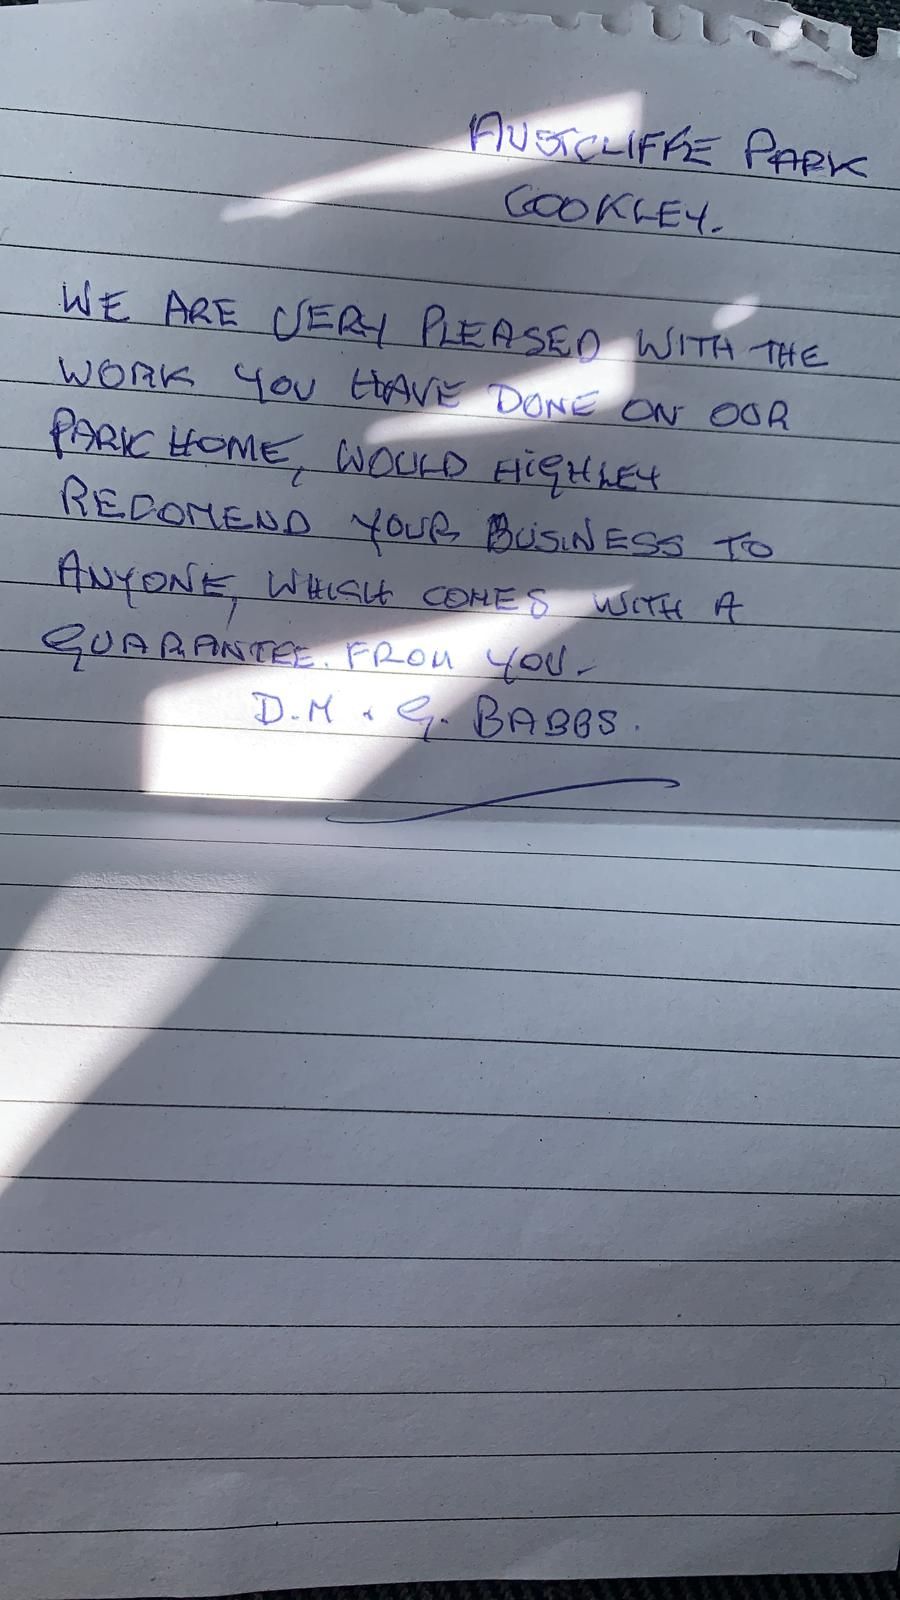 AUSTCLIFFE PARK
COOKLEY.
WE ARE VERY PLEASED WITH THE
WORK YOU HAVE DONE ON OUR
PARK HOME, WOULD HIGHLEY
RECOMEND YOUR BUSINESS TO
ANYONE, WHISH COMES WITH A
GUARANTEE. FROM YOU.
D.M & G. BABBS.